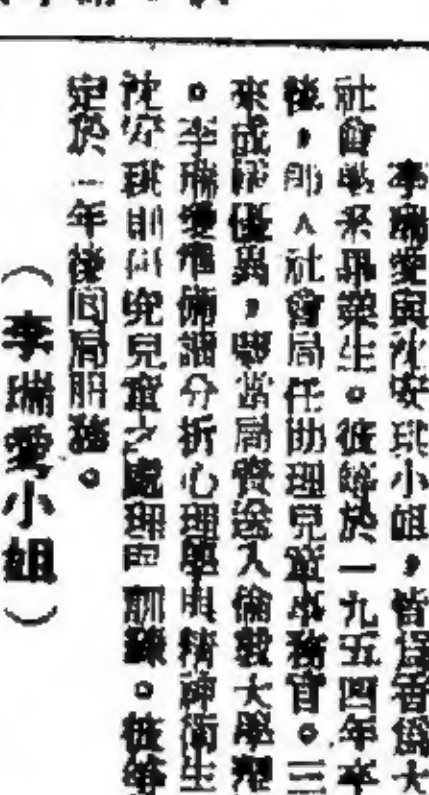 李瑞愛與沈安琪小姐，皆為香島大
社會學系畢業生。彼等於一九五四年卒
後，即入社會局任助理兒童事務官。三
來成績優異，學當局資送入倫敦大學理
。李瑞愛準備讀分析心理學與精神衛生
沈安琪則研究兒童之處理與訓練。彼等
定於一年後回局服務。
（李瑞愛小姐）